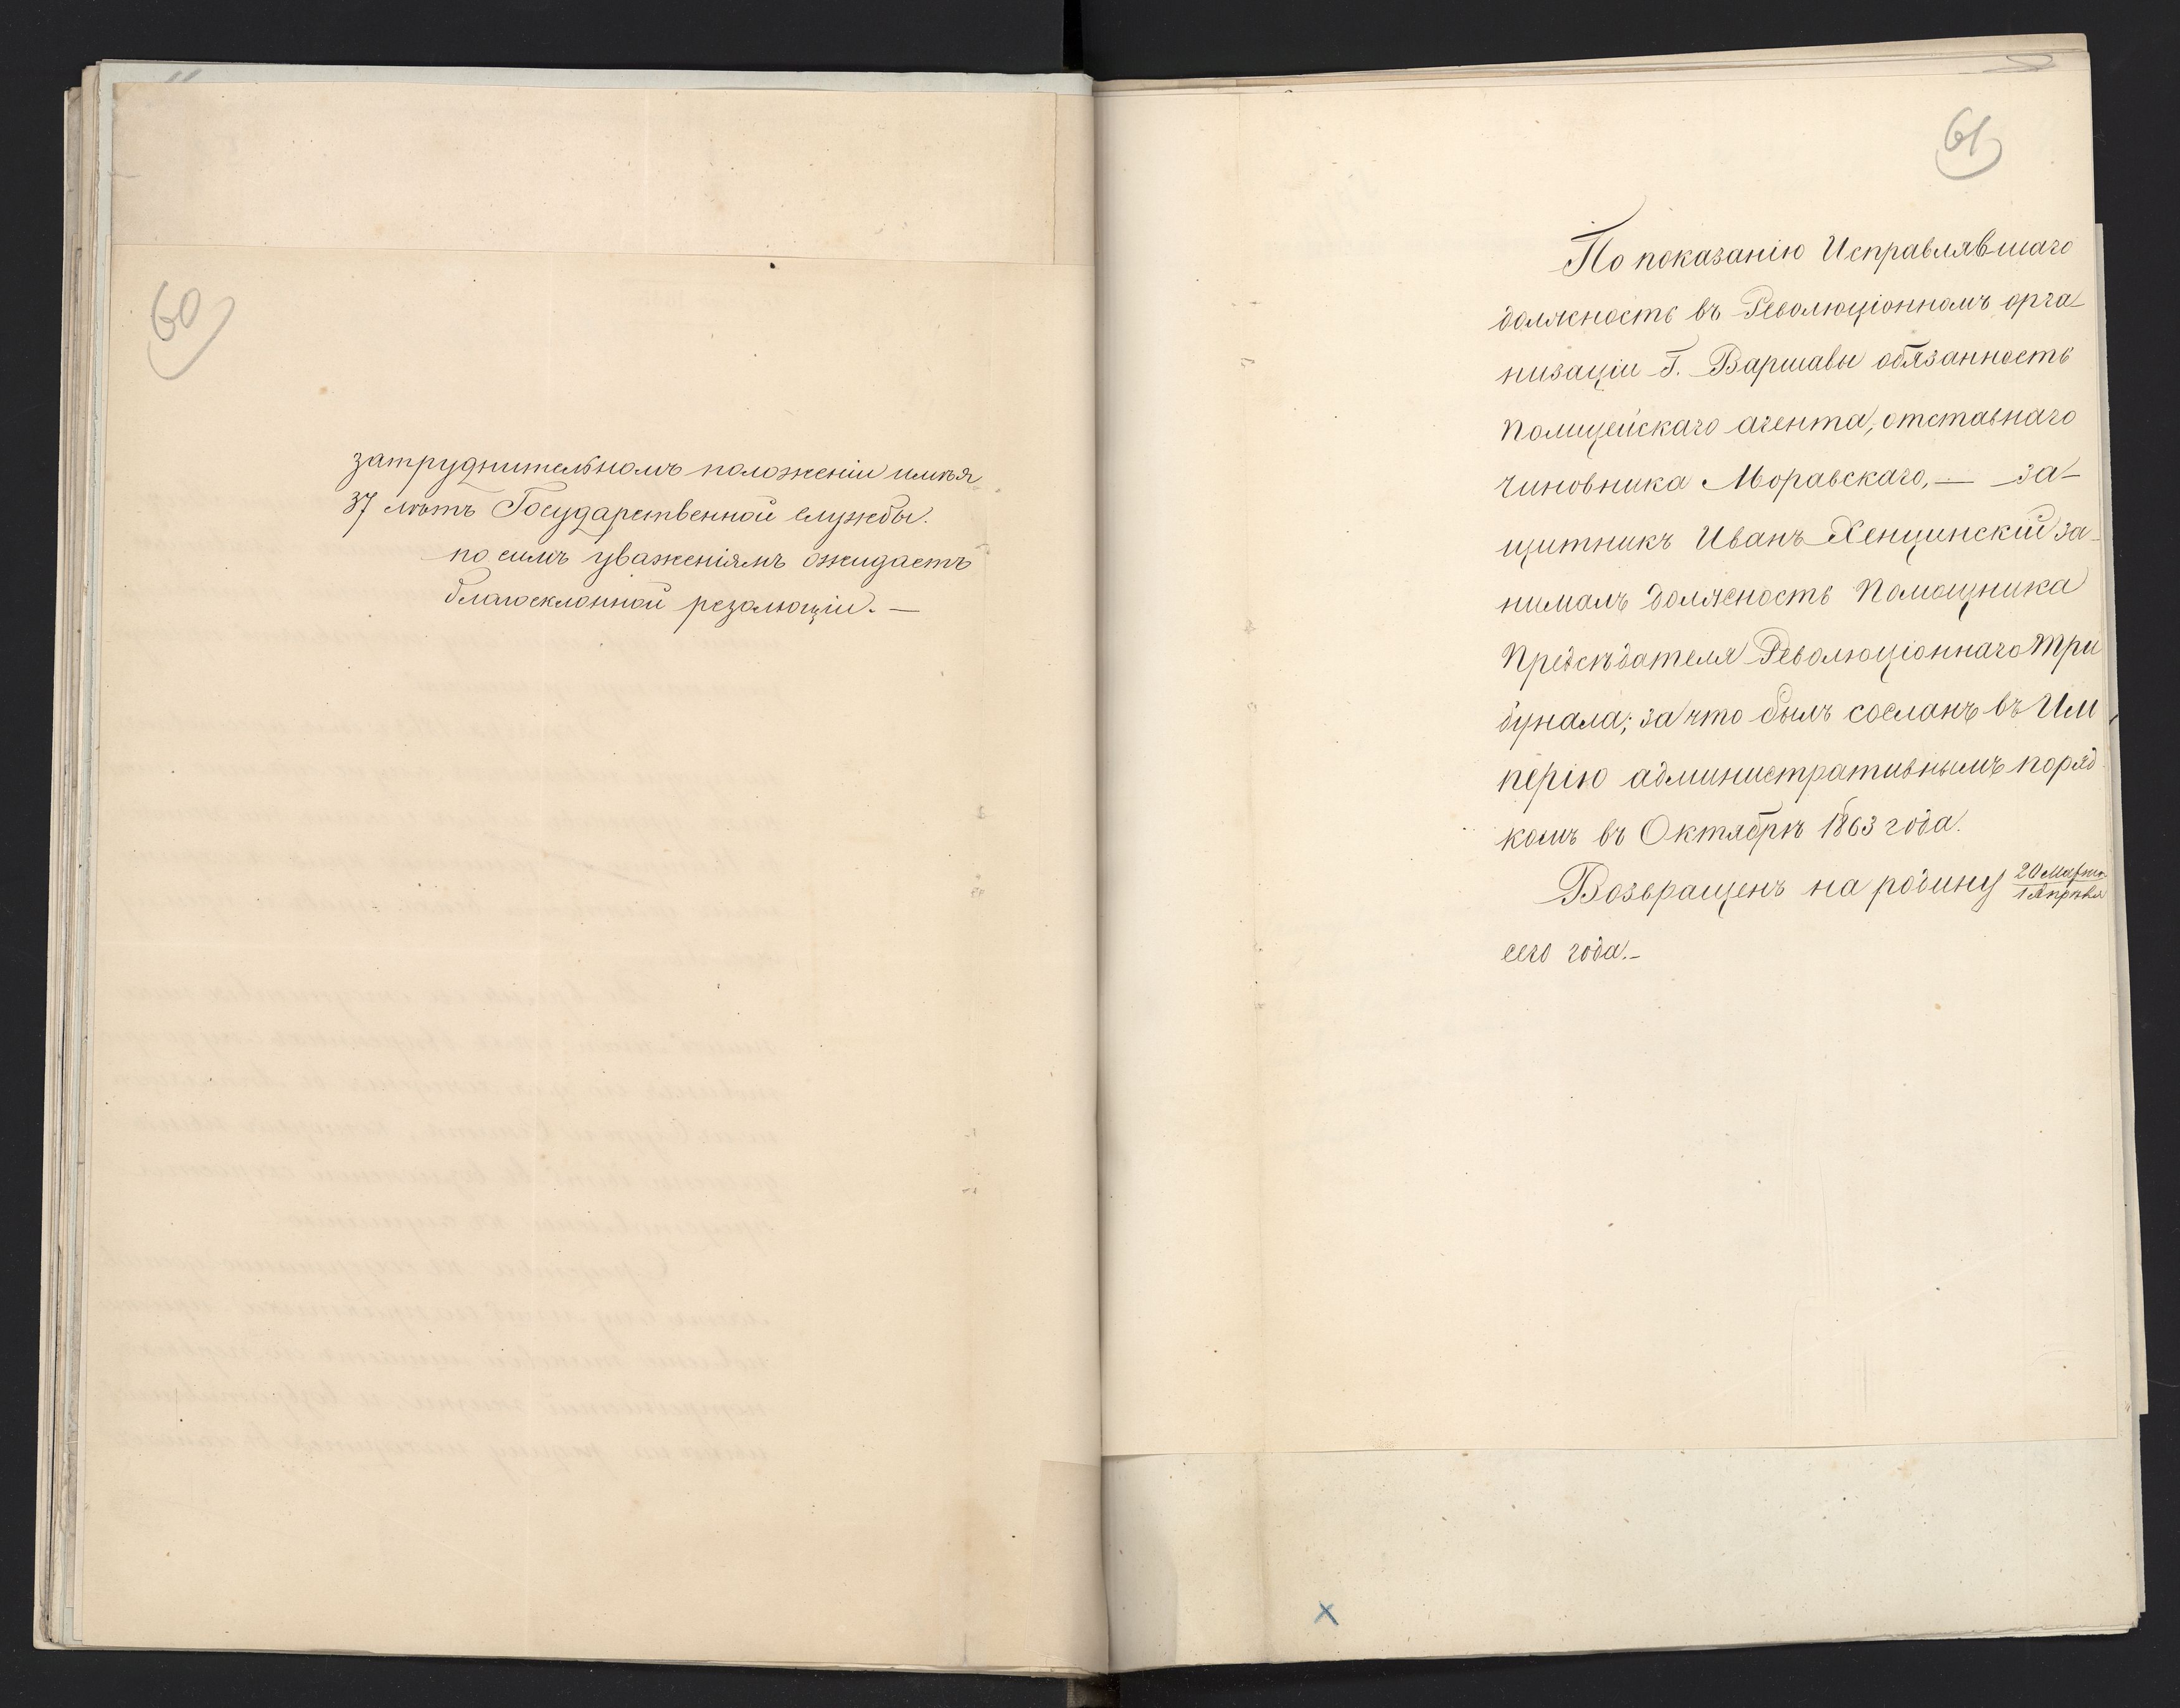 60
затруднительномъ положеніи имѣя
37 лѣтъ Государственной службы.
по симъ уваженіямъ ожидаетъ
благосклонной резолюціи. —
61
По показанію Исправлявшаго
должность въ Революціонномъ орга
низаціи Г. Варшавы обязанность
полицейскаго агента, отставнаго
чиновника Моравскаго, — за-
щитникъ Иванъ Хенцинскій за-
нималъ должность Помощника
Предсѣдателя Революціоннаго Три
бунала; за что былъ сосланъ въ Им
перію административнымъ поряд
комъ въ Октябрѣ 1863 года.
Возвращенъ на родину 20 Марта / 1 Апрѣля
сего года. –